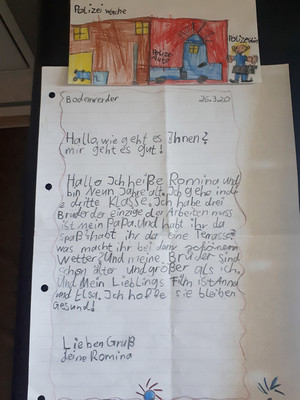 Polizei wache
Polizei
Auto
Polizistin
Bodenwerder 26.3.20
Hallo, wie geht es Ihnen?
mir geht es gut!
Hallo Ich heiße Romina und
bin Neun Jahre alt. Ich gehe in die
dritte Klasse. Ich habe drei
Brüder der einzige der Arbeiten muss
ist mein PaPa. Und habt ihr da
spaß habt ihr da eine Terasse
was macht ihr bei dem schönen
Wetter? Und meine Brüder sind
schon älter und größer als ich.
Und Mein Lieblings Film ist Anna
und Elsa. Ich hoffe sie bleiben
Gesund!
Lieben Gruß
deine Romina